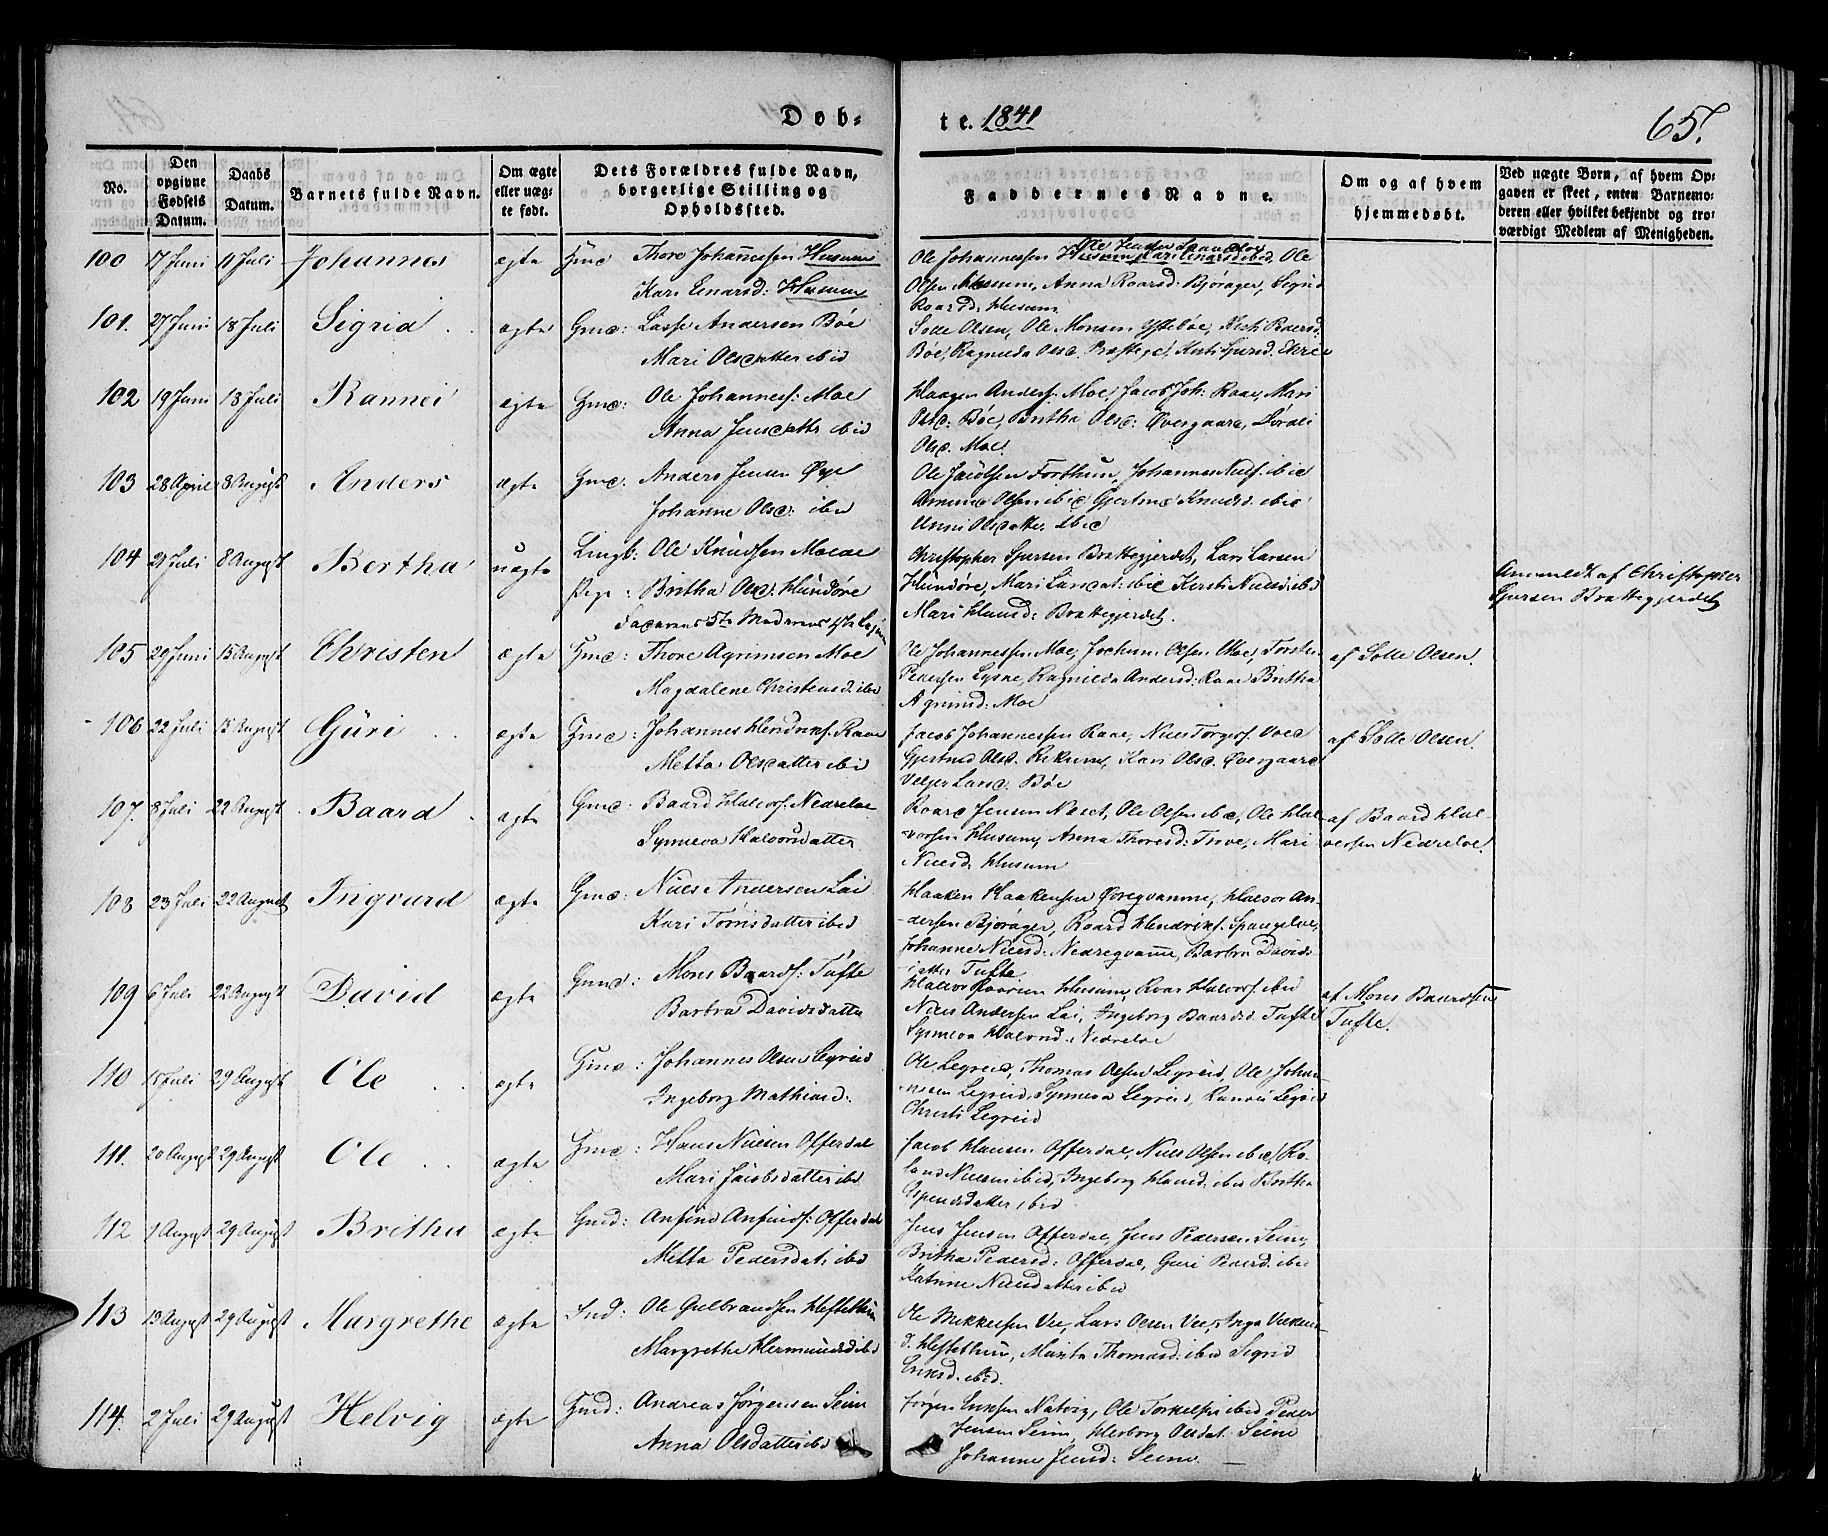 Døb-
te. 1841
65.
No.
Den opgivne Fødsels Datum.
Daabs Datum.
Barnets fulde Navn.
Om ægte eller uæg-te født.
Dets Forældres fulde Navn, borgerlige Stilling og Opholdssted.
Faddernes Navne.
Om og af hvem hjemmedøbt.
Ved uægte Børn, af hvem Op-gaven er skeet, enten Barnemo-deren eller hvilket bekjendt og tro-værdigt Medlem af Menigheden.
100 7 Juni 11 Juli Johannes ægte Gmd Thore Johannessen Husum
Kari Einarsd: Husum
Ole Johannessen Husum, Kari Einarsd ibid, Ole
Olsen Husum, Anna Roarsd: Bjøråger, Sigrid
Roarsd: Husum
101. 27 Juni 18 Juli Sigrid ægte Gmd: Lasse Andersen Bøe
Mari Olsdatter ibid
Solle Olsen, Ole Monsen Ytrebøe, Kirsti Pedersd.
Bøe, Ragnilda Olsd.
102 19 Juni 18 Juli Rannei ægte Gmd: Ole Johanness: Moe
Anna Jensdattr ibid
Haagen Anders: Moe, Jacob Joh: Raae, Mari
Olsd: Bøe, Britha Olsd: Øvregaard,
Olsd. Moe.
103 28 April 8 August Anders ægte Gmd. Anders Jensen Øye
Johanne Olsd: ibid
Ole Jacobsen Forthun, Johannes Niels: ibid
Olsen ibid Gjertrud Knudsd. ibid
Anni Olsdatter ibid
104 21 Juli 8 August Bertha uægte Ungk: Ole Knudsen Moldе
Pige: Britha Olsd: Hundøre
Faderens 5te Moderens 4de Lejrm
Christopher Sjursen Brattegjerdet, Lars Larsen
Hundøre, Mari Larsdat: ibid Kirsti Nielsd: ibid
Mari Hansd: Brattegjerdet.
Anmeldt af Christopher
Sjursen Brattegjerdet
105 29 Juni 15 August Christen ægte Gmd: Thore Agrimsen Moe
Magdalene Christensd: ibid
Ole Johannessen Moe, Jochum Olsen Moe, Torsten
Pedersen Lysne, Ragnilda Andersd: Raae Britha
Agrimsd: Moe
af Solle Olsen.
106 22 Juli 15 August Guri ægte Gmd: Johannes Hendriks: Raae
Metta Olsdatter ibid
Jacob Johannessen Raae, Niels Torgers: Vold
Gjertrud Olsd. Rikum, Kari Olsd. Øvregaard
Larsd. Bøe
af Solle Olsen.
107. 8 Juli 22 August Baard ægte Gmd: Baard Halvors: Nedreloe
Synneva Halvorsdatter
Roard Jensen Næset, Ole Olsen ibid, Ole Hal-
vorsen Husum, Anna Thoresd: Trave, Mari
Nielsd: Husum
af Baard Hal-
vorsen Nedreloe.
108 23 Juli 22 August Ingvard ægte Gmd: Niels Andersen Lai
Kari Tørrisdatter ibid
Haaken Haakensen Øvregvamme, Halvor An-
dersen Bjøråger, Roard Hendriks: Spangeloe,
Johanne Nielsd: Nedregvamme, Barbra Davids-
datter Tufte
109 6 Juli 22 August David ægte Gmd: Mons Baards: Tufte
Barbra Davidsdatter
Halvor Roarsen Husum, Roar Halvors: ibid
Niels Andersen Lai, Ingeborg Baardsd. Tufte
Synneva Halvorsd. Nedreloe
af Mons Baardsen
Tufte.
110 15 Juli 29 August Ole ægte Gmd: Johannes Olsen Legreid
Ingeborg Mathiasd:
Ole Legreid, Thomas Olsen Legreid, Ole Johan-
nesen Legreid, Synneva Legreid, Rannei Legreid
Christi Legreid
111. 20 August 29 August Ole ægte Gmd: Hans Nielsen Offerdal
Mari Jacobsdatter ibid
Jacob Hansen Offerdal, Niels Olsen ibid, Ro-
land Nielsen ibid, Ingeborg Hansd: ibid Britha
Espensdatter ibid
112 1 August 29 August Britha ægte Gmd: Anfind Anfinds: Offerdal
Metta Pedersdat: ibid
Jens Jensen Offerdal, Jens Pedersen Seim,
Britha Pedersd: Offerdal, Guri Pedersd. ibid
Katrine Nielsdatter ibid
113 13 August 29 August Margrethe ægte Ind: Ole Gulbrandsen Hestethun
Margrethe Hermundsd ibid
Ole Mikkelsen Vee, Lars Olsen Vee, Inga
d. Hestethun, Marita Thomasd: ibid Sigrid
Eriksd. ibid.
114. 2 Juli 29 August Helvig ægte Gmd: Andreas Jørgensen Seim
Anna Olsdatter ibid
Jørgen Eriksen Natvig, Ole Torkelsen ibid Peder
Jensen Seim, Herborg Olsdat. Seim
Johanne Jensd: Seim.